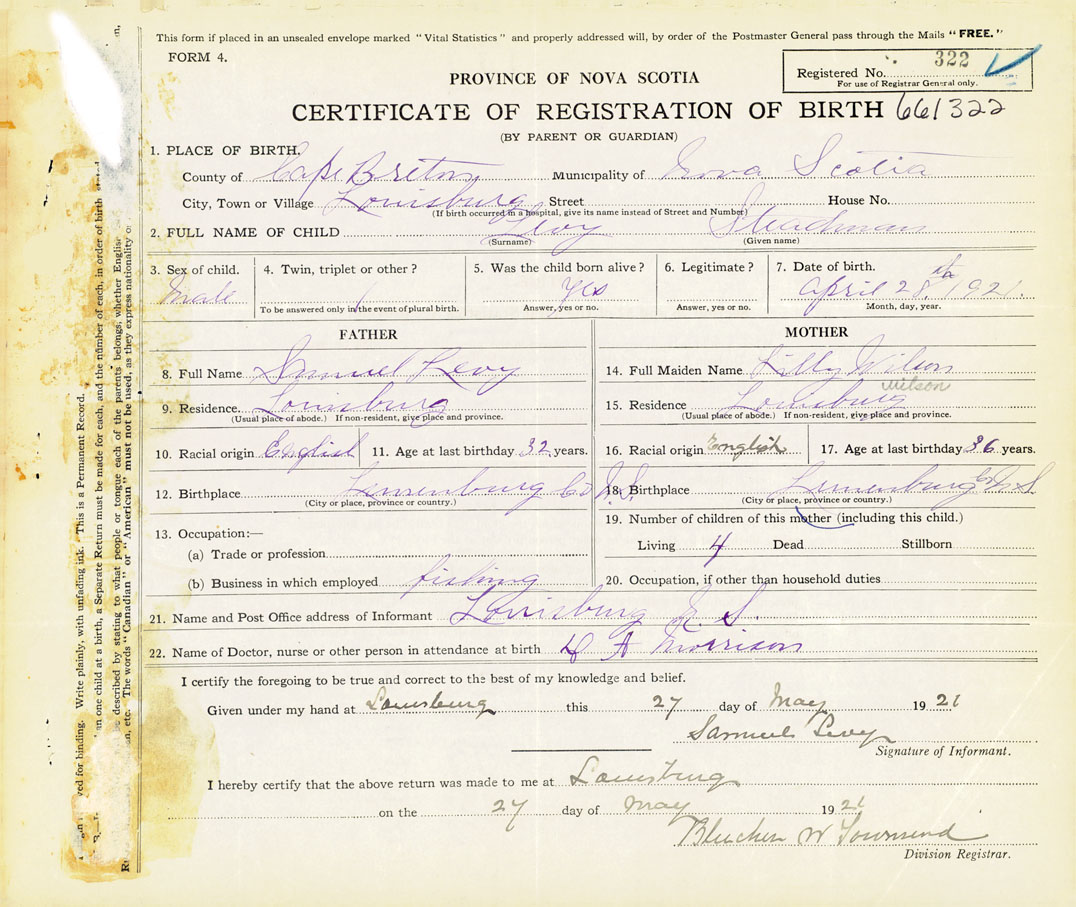 This form if placed in an unsealed envelope marked "Vital Statistics" and properly addressed will, by order of the Postmaster General pass through the Mails "FREE."
FORM 4.
322
Registered No.
For use of Registrar General only.
PROVINCE OF NOVA SCOTIA
CERTIFICATE OF REGISTRATION OF BIRTH 661322
(BY PARENT OR GUARDIAN)
1. PLACE OF BIRTH.
County of Cape Breton Municipality of Nova Scotia
City, Town or Village Louisburg Street House No.
(If birth occurred in a hospital, give its name instead of Street and Number)
2. FULL NAME OF CHILD Levy Steadman
(Surname) (Given name)
3. Sex of child. Male
4. Twin, triplet or other?
To be answered only in the event of plural birth.
5. Was the child born alive? Yes
Answer, yes or no.
6. Legitimate?
Answer, yes or no.
7. Date of birth. April 28th 1921.
Month, day, year.
FATHER
8. Full Name Samuel Levy
9. Residence. Louisburg
(Usual place of abode.) If non-resident, give place and province.
10. Racial origin English 11. Age at last birthday 32 years.
12. Birthplace Lunenburg Co N.S.
(City or place, province or country.)
13. Occupation:—
(a) Trade or profession
(b) Business in which employed fishing
MOTHER
14. Full Maiden Name Lilly Wilson
Wilson
15. Residence Louisburg
(Usual place of abode.) If non-resident, give place and province.
16. Racial origin English 17. Age at last birthday 36 years.
18. Birthplace Lunenburg Co N S
(City or place, province or country.)
19. Number of children of this mother (including this child.)
Living 4 Dead Stillborn
20. Occupation, if other than household duties
21. Name and Post Office address of Informant Louisburg N. S.
22. Name of Doctor, nurse or other person in attendance at birth D A Morrison
I certify the foregoing to be true and correct to the best of my knowledge and belief.
Given under my hand at Louisburg this 27 day of May 1921
Samuel Levy
Signature of Informant.
I hereby certify that the above return was made to me at Louisburg
on the 27 day of May 1921
W Townsend
Division Registrar.
Write plainly, with unfading ink. This is a Permanent Record.
an one child at a birth, a Separate Return must be made for each, and the number of each, in order of birth
described by stating to what people or tongue each of the parents belongs, whether English
The words "Canadian" or "American" must not be used, as they express nationality